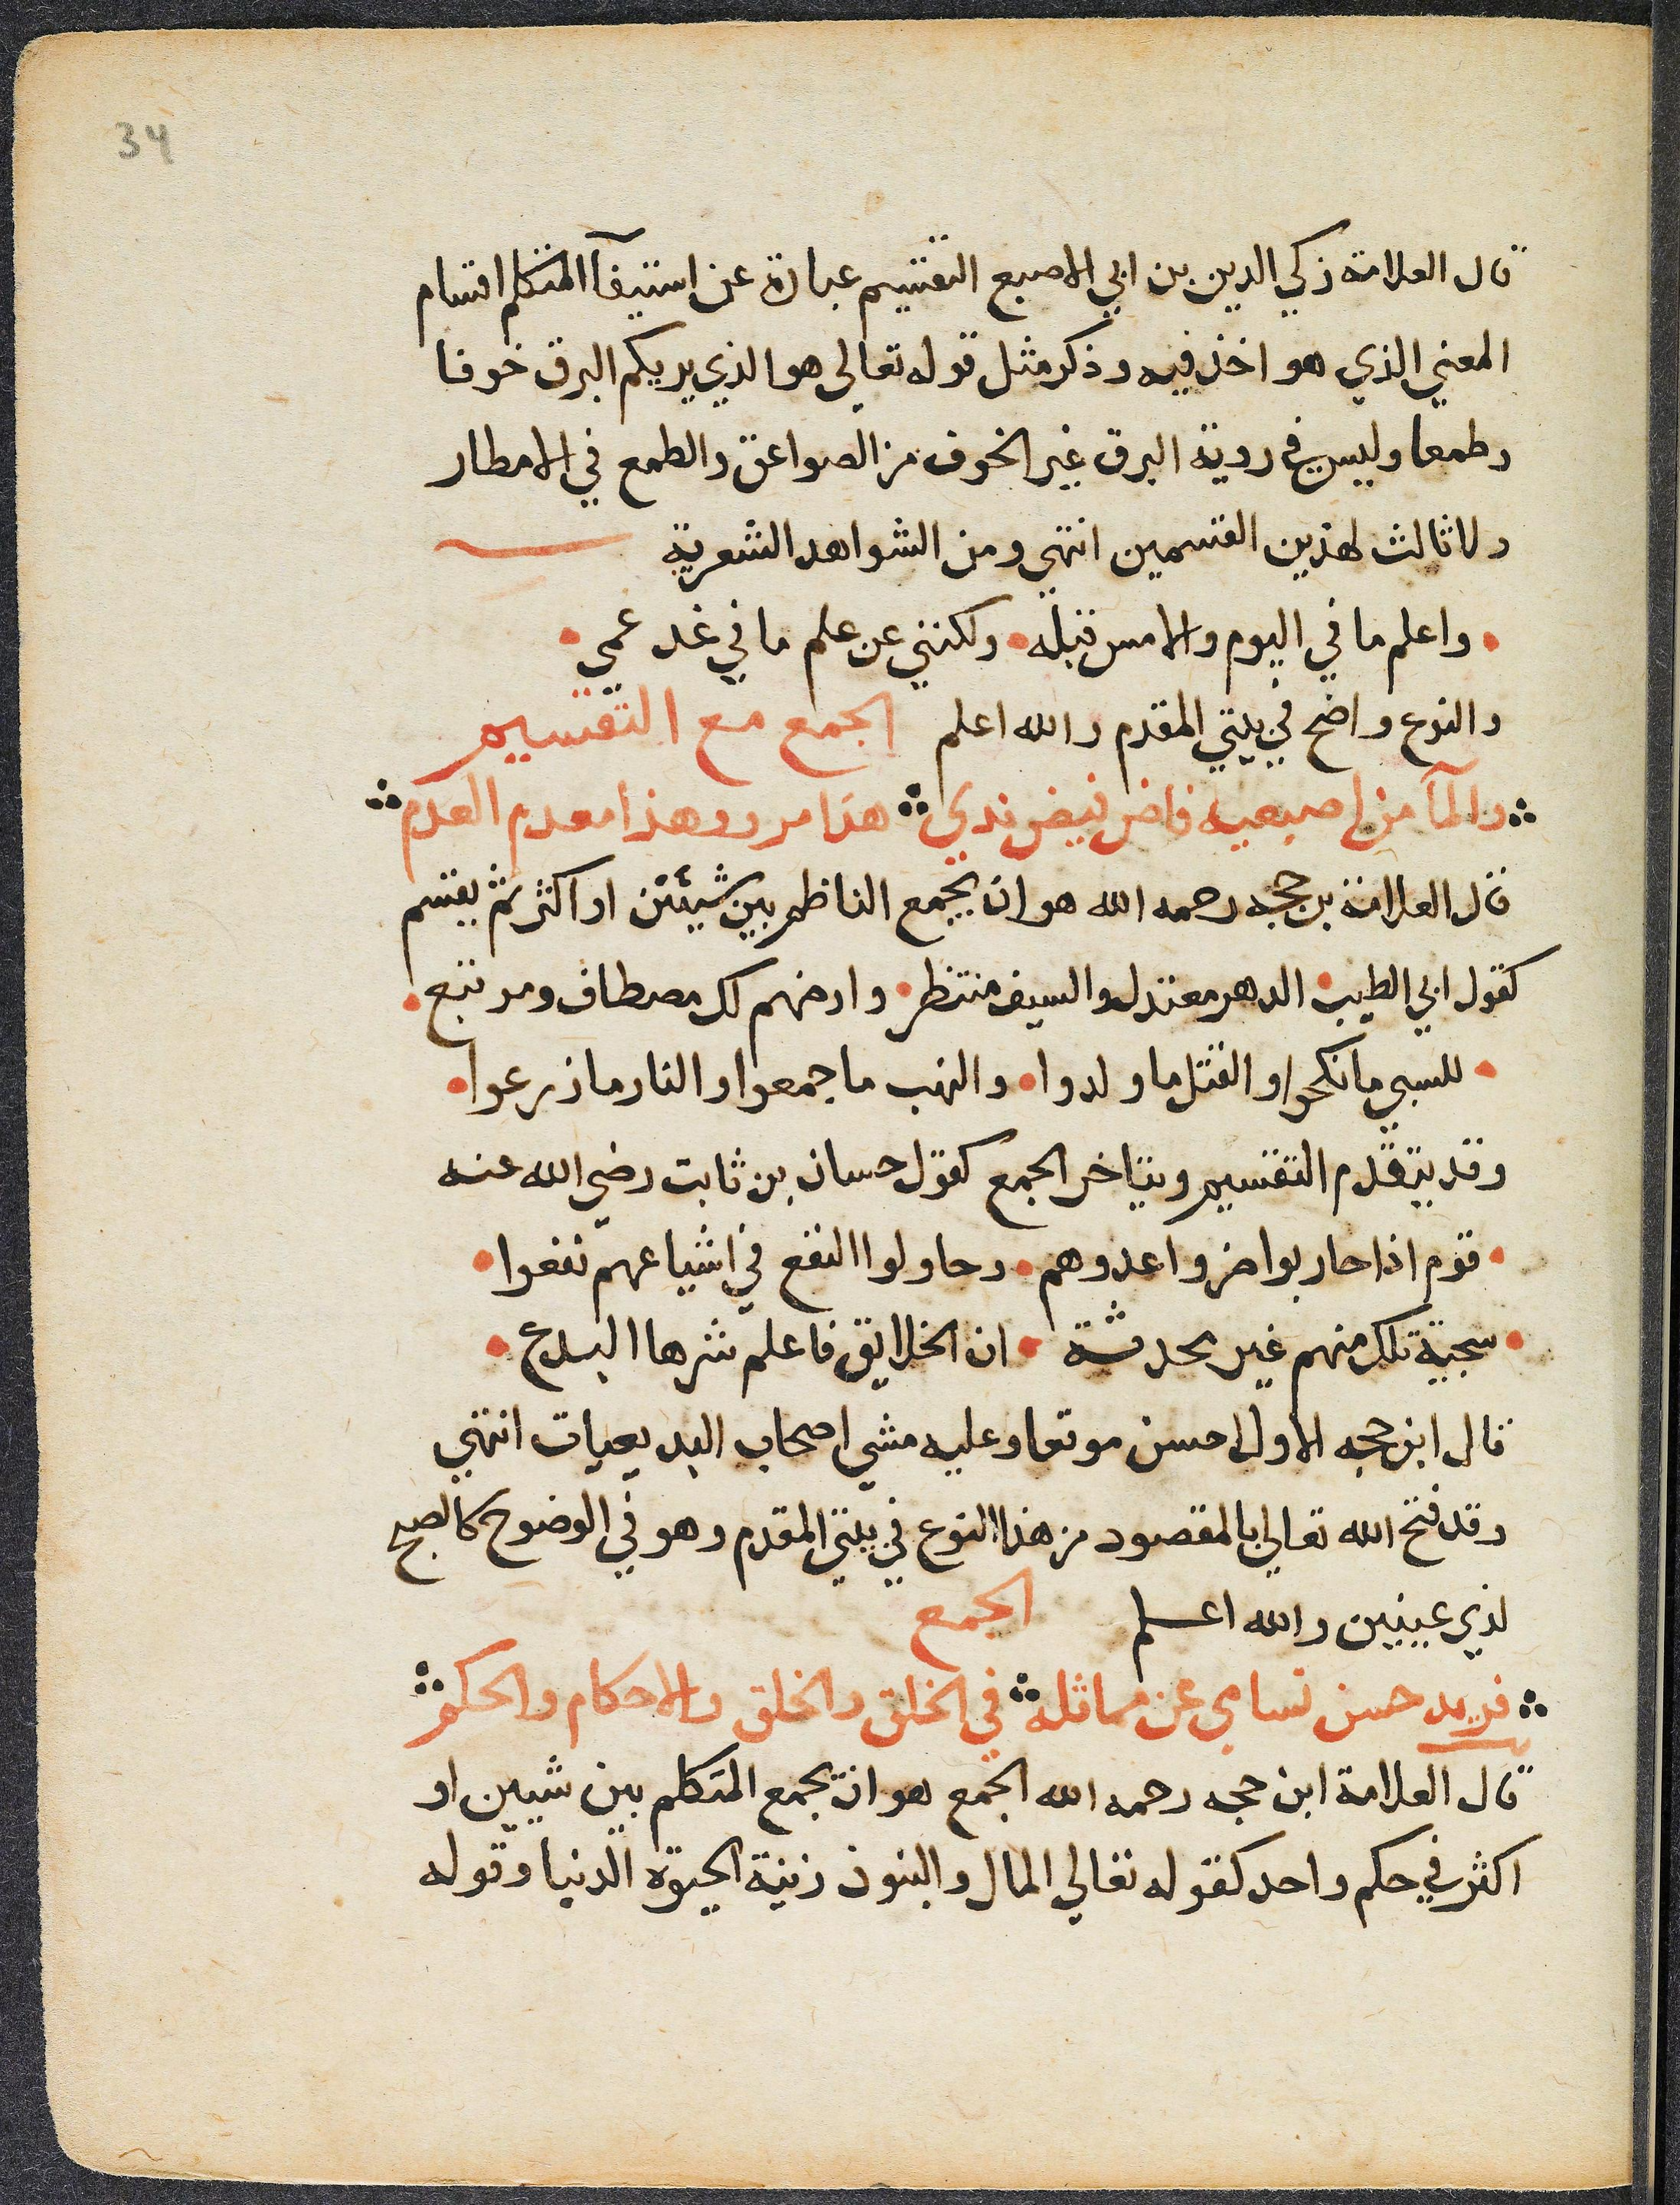 34
قال العلامة زكي الدين بن ابي الاصبع التقسيم عبارة عن استيفآ المتكلم اقسام
المعني الذي هو اخذ فيه وذكر مثل قوله تعالي هو الذي يريكم البرق خوفا
وطمعا وليس في روية البرق غير الخوف من الصواعق والطمع في الامطار
ولا ثالث لهذين القسمين انتهي ومن الشواهد الشعرية
واعلم ما في اليوم والامس قبله ولكنني عن علم ما في غد عمي
والنوع واضح في بيتي المقدم والله اعلم الجمع مع التقسيم
والمآ من اصبعيه فاض فيض ندي هذا مرو وهذا معدم العدم
قال العلامة بن حجه رحمه الله هو ان يجمع الناظم بين شيئين او اكثر ثم يقسم
كقول ابي الطيب الدهر معتذل والسيف منتظر وارضهم لك مصطاف ومرتبع
للسبي ما نكحوا والقتل ما ولدوا والنهب ما جمعوا والنار ما زرعوا
وقد يتقدم التقسيم ويتاخر الجمع كقول حسان بن ثابت رضي الله عنه
قوم اذا حاربوا ضروا عدوهم وحاولوا النفع في اشياعهم نفعوا
سجية تلك منهم غير محدثة ان الخلايق فاعلم شرها البدع
قال ابن حجه الاول احسن موقعا وعليه مشي اصحاب البديعيات انتهي
وقد فتح الله تعالي بالمقصود من هذا النوع في بيتي المقدم وهو في الوضوح كالصبح
لذي عينين والله اعلم الجمع
فريد حسن تسامي عن مماثلة في الخلق والخلق والاحكام والحكم
قال العلامة ابن حجه رحمه الله الجمع هو ان يجمع المتكلم بين شيين او
اكثر في حكم واحد كقوله تعالي المال والبنون زينة الحيوة الدنيا وقوله